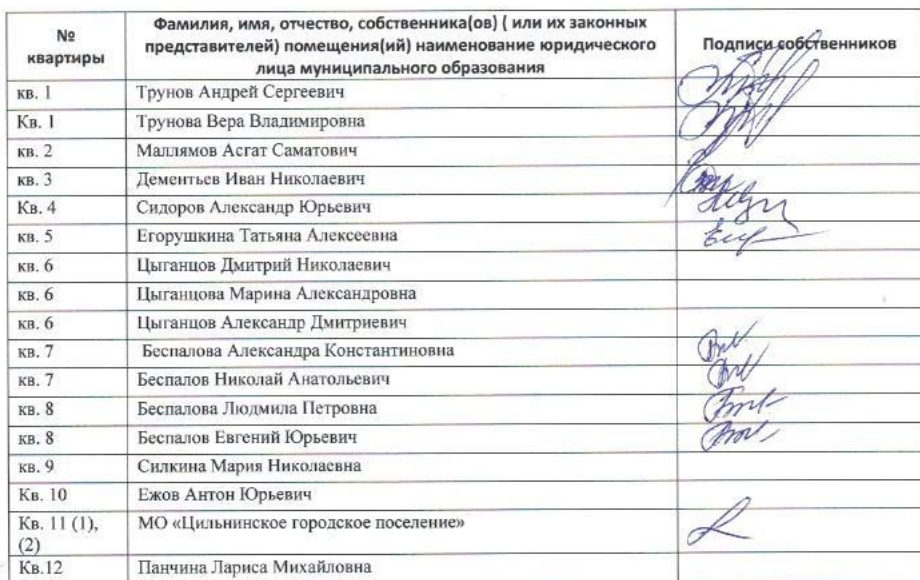 № квартиры
Фамилия, имя, отчество, собственника(ов) ( или их законных представителей) помещения(ий) наименование юридического лица муниципального образования
Подписи собственников
кв. 1 Трунов Андрей Сергеевич
Кв. 1 Трунова Вера Владимировна
кв. 2 Маллямов Асгат Саматович
кв. 3 Дементьев Иван Николаевич
Кв. 4 Сидоров Александр Юрьевич
кв. 5 Егорушкина Татьяна Алексеевна
кв. 6 Цыганцов Дмитрий Николаевич
кв. 6 Цыганцова Марина Александровна
кв. 6 Цыганцов Александр Дмитриевич
кв. 7 Беспалова Александра Константиновна
кв. 7 Беспалов Николай Анатольевич
кв. 8 Беспалова Людмила Петровна
кв. 8 Беспалов Евгений Юрьевич
кв. 9 Силкина Мария Николаевна
Кв. 10 Ежов Антон Юрьевич
Кв. 11 (1), (2) МО «Цильнинское городское поселение»
Кв.12 Панчина Лариса Михайловна